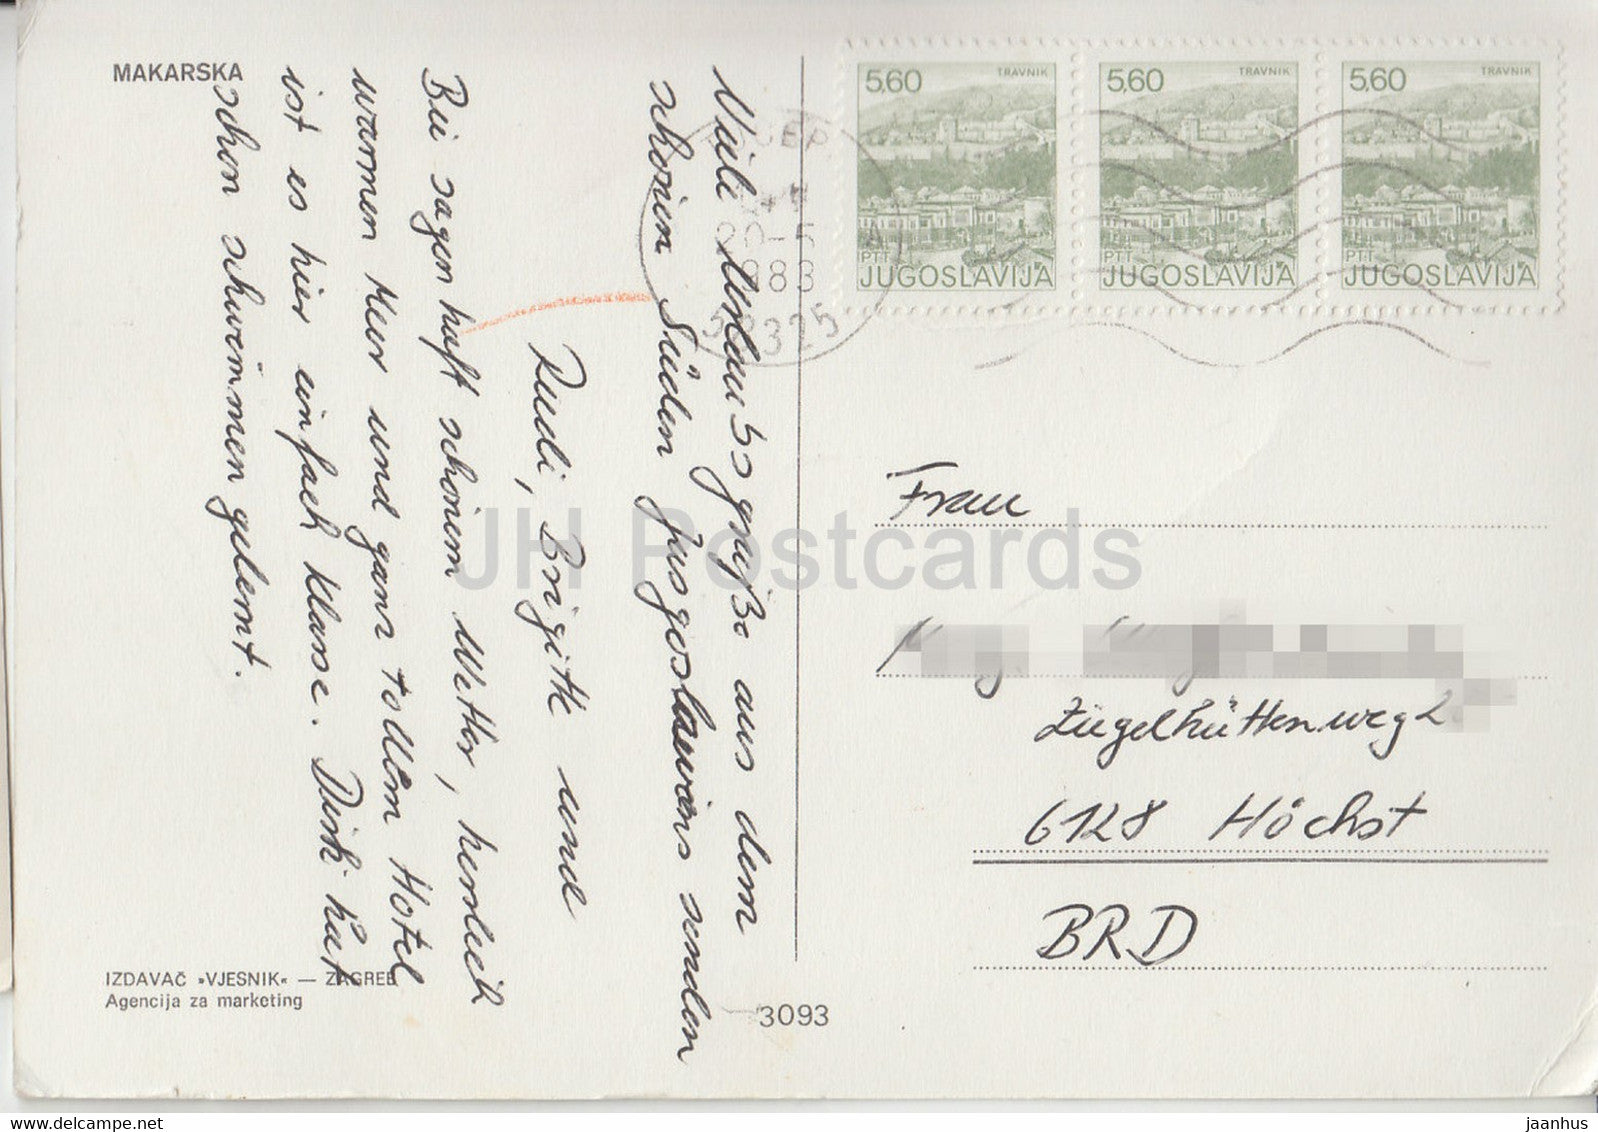 MAKARSKA
Viele Urlaubsgrüße aus dem
schönen Süden Jusgoslawiens senden
Rudi, Brigitte und
Bei sagenhaft schönem Wetter, herrlich
warmen Meer und ganz tollem Hotel
ist es hier einfach Klasse. Dirk hat
schon schwimmen gelernt.
IZDAVAČ »VJESNIK« — ZAGREB
Agencija za marketing
3093
5,60 TRAVNIK
PTT
JUGOSLAVIJA
5,60 TRAVNIK
PTT
JUGOSLAVIJA
5,60 TRAVNIK
PTT
JUGOSLAVIJA
58325
Frau
Ziegelhüttenweg 2
6128 Höchst
BRD
JH Postcards
jaanhus